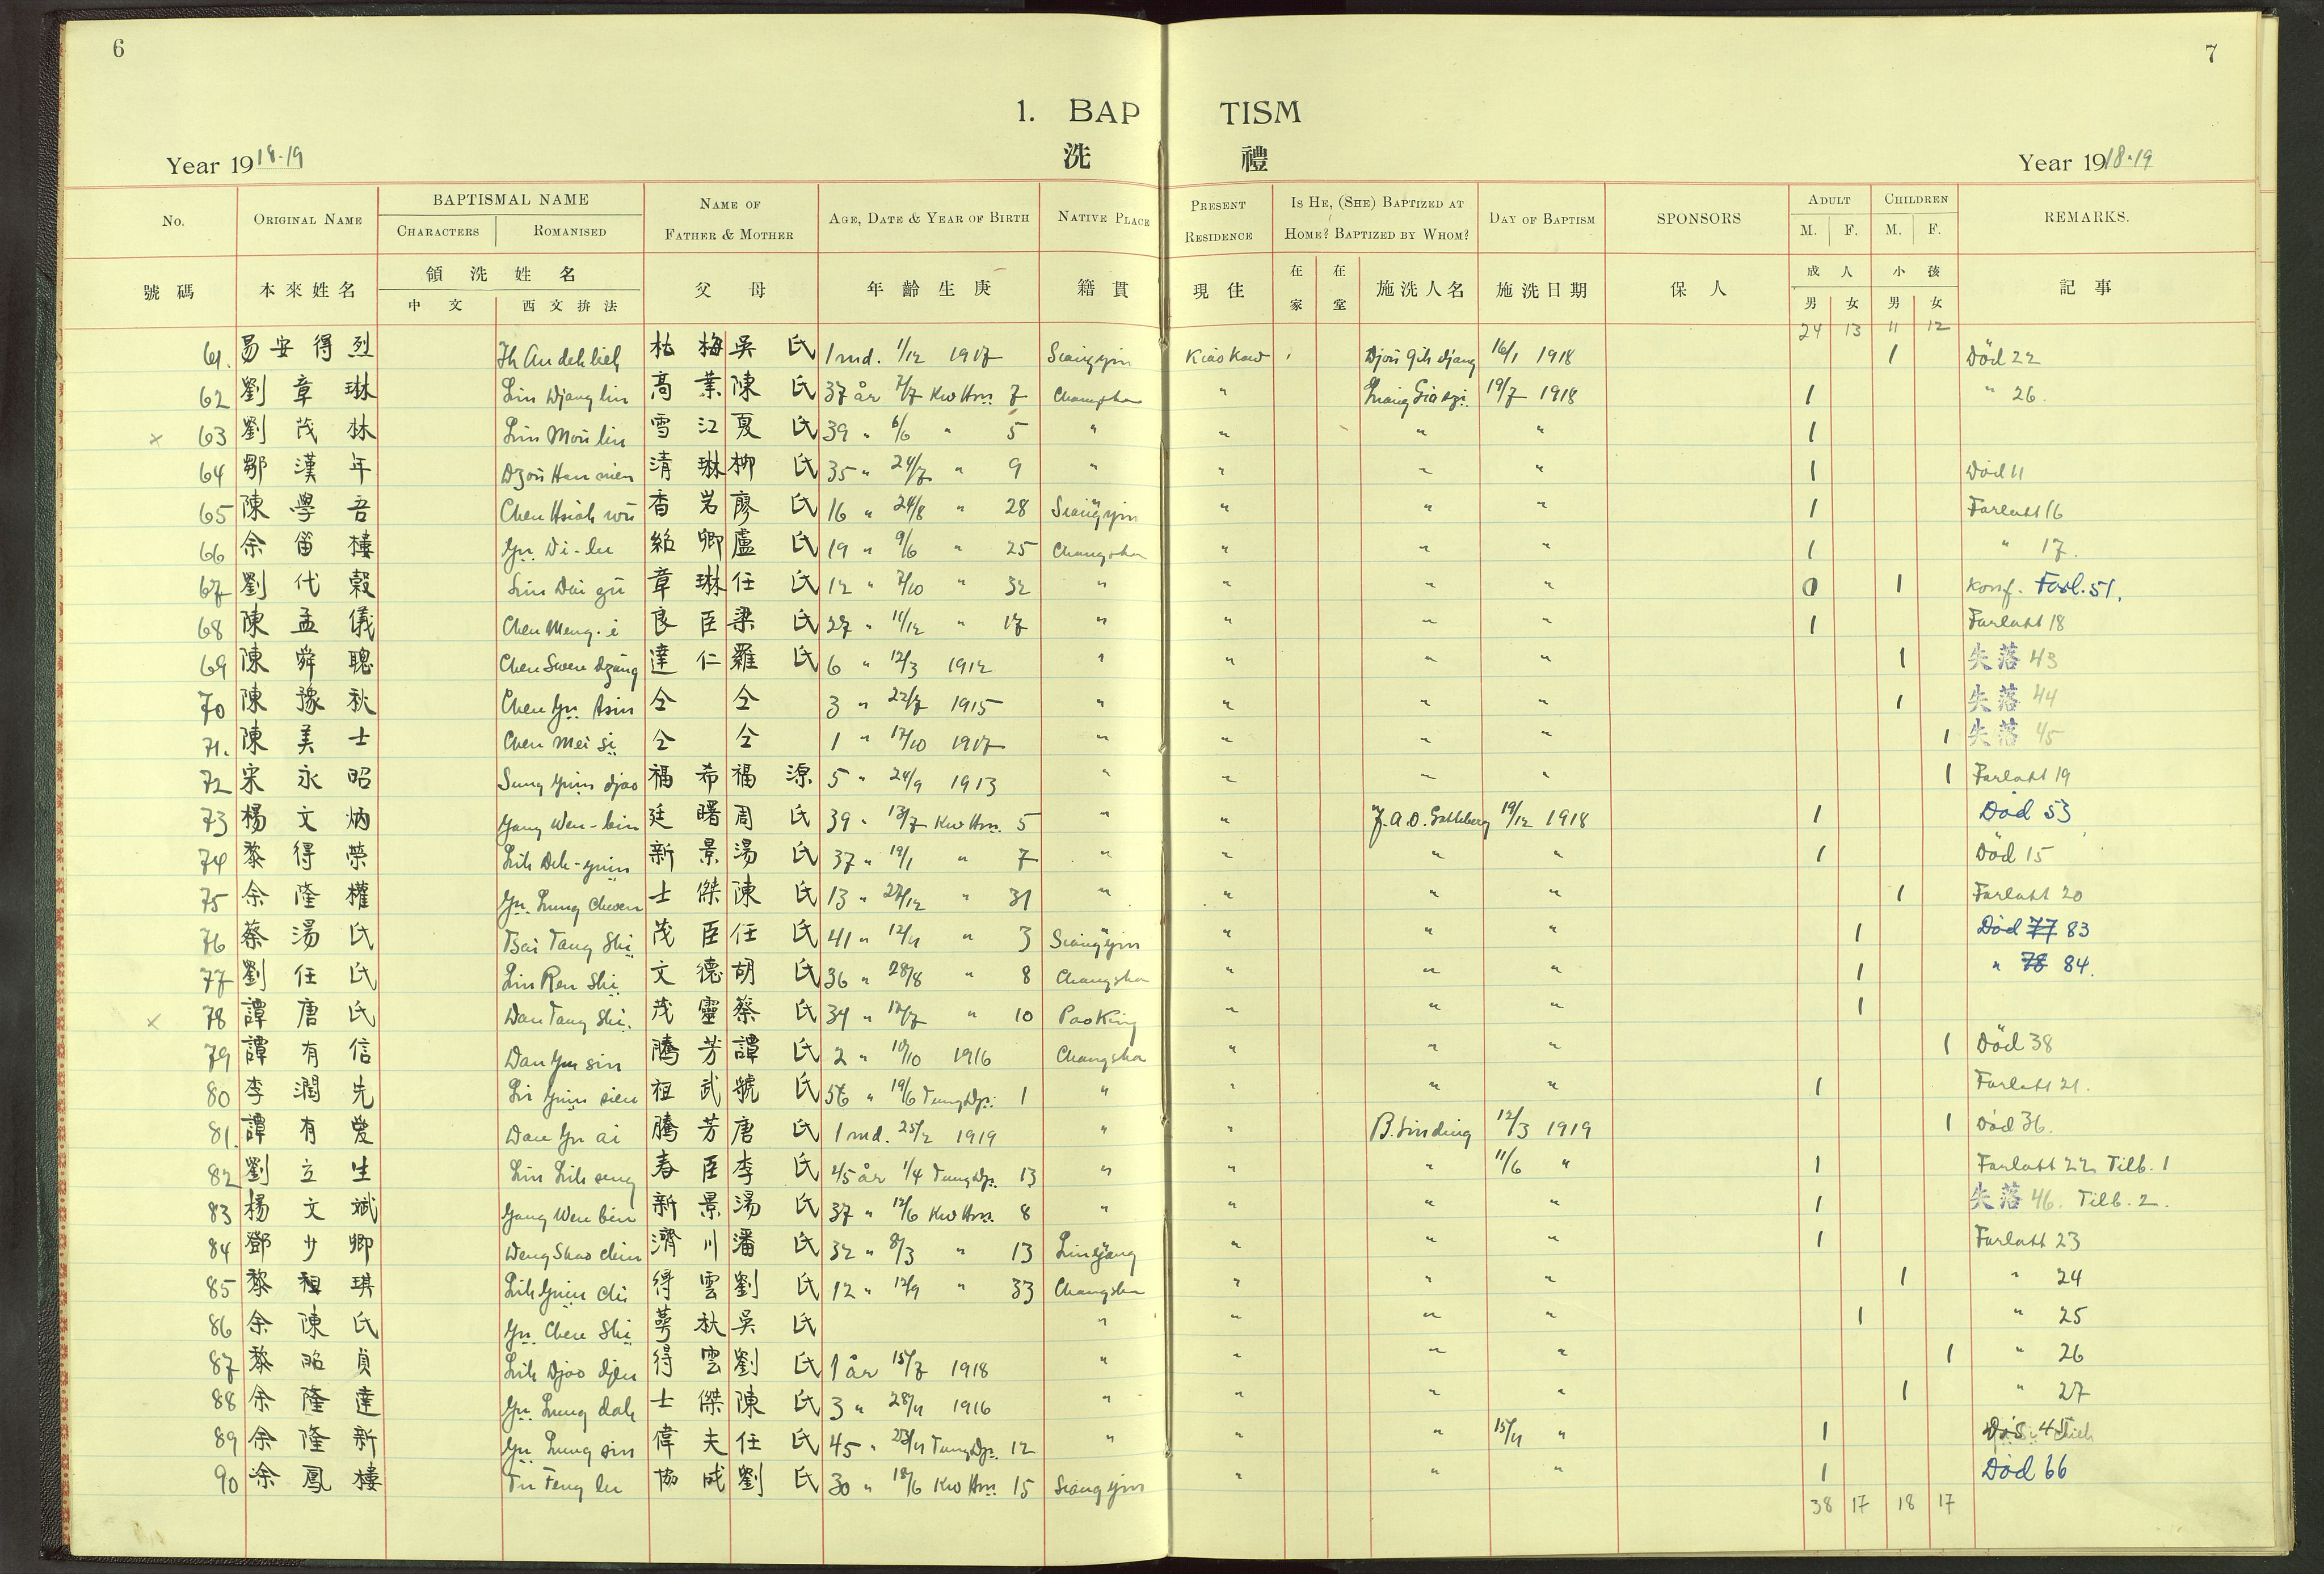 6
7
1. BAPTISM
洗 禮
Year 1918-19
Year 1918-19
No. ORIGINAL NAME BAPTISMAL NAME NAME OF FATHER & MOTHER AGE, DATE & YEAR OF BIRTH NATIVE PLACE PRESENT RESIDENCE IS HE, (SHE) BAPTIZED AT HOME? BAPTIZED BY WHOM? DAY OF BAPTISM SPONSORS ADULT CHILDREN REMARKS.
CHARACTERS ROMANISED M. F. M. F.
號碼 本來姓名 領洗姓名 父母 年齡生庚 籍貫 現住 在家 在堂 施洗人名 施洗日期 保人 成人 小孩 記事
中文 西文拚法 男 女 男 女
24 13 11 12
61. 易安得烈 Ih An deh lieh 枯梅 吳氏 1 md. 1/12 1917 Siangyin Kiaokow 16/1 1918 1 Död 22
62 劉章琳 Liu Djang lin 高業 陳氏 37 år 7/7 Kwo Hsü 7 Changsha " 19/7 1918 1 " 26.
x 63 劉茂林 Liu Mou lin 雪江 夏氏 39 " 6/6 " 5 " " " " 1
64 鄒漢年 Dzou Han nien 清琳 柳氏 35 " 24/7 " 9 " " " " 1 Död 11
65 陳學吾 Chen Hsioh wu 香岩 廖氏 16 " 24/8 " 28 Siangyin " " " 1 Forlatt 16
66 余笛樓 Yu Di-lu 紹卿 盧氏 19 " 9/6 " 25 Changsha " " " 1 " 17.
67 劉代穀 Liu Dai gu 章琳 任氏 12 " 7/10 " 32 " " " " 0 1 Konf. Forl. 51.
68 陳孟儀 Chen Meng-i 良臣 梁氏 27 " 11/12 " 17 " " " " 1 Forlatt 18
69 陳舜聰 Chen Swen dzung 達仁 羅氏 6 " 12/3 1912 " " " " 1 失落 43
70 陳豫秋 Chen Yu tsiu 仝 仝 3 " 22/7 1915 " " " " 1 失落 44
71. 陳美士 Chen Mei si 仝 仝 1 " 17/10 1917 " " " " 1 失落 45
72 宋永昭 Sung Yuin djao 福希 福源 5 " 24/9 1913 " " " " 1 Forlatt 19
73 楊文炳 Yang Wen-bin 廷曙 周氏 39 " 13/7 Kwo Hsü 5 " " 19/12 1918 1 Död 53
74 黎得榮 Lih Deh-yuin 新景 湯氏 37 " 19/1 " 7 " " " " 1 Död 15
75 余隆權 Yu Lung Chuen 士傑 陳氏 13 " 27/12 " 31 " " " " 1 Forlatt 20
76 蔡湯氏 Tsai Tang Shi 茂臣 任氏 41 " 12/11 " 3 Siangyin " " " 1 Död 77 83
77 劉任氏 Liu Ren Shi 文德 胡氏 36 " 28/8 " 8 Changsha " " " 1 " 78 84.
x 78 譚唐氏 Dan Tang Shi 茂靈 蔡氏 34 " 12/7 " 10 Paoking " " " 1
79 譚有信 Dan Yu sin 騰芳 譚氏 2 " 10/10 1916 Changsha " " " 1 Död 38
80 李潤先 Li Yuin sien 祖武 虢氏 56 " 19/6 Tung Dji 1 " " " " 1 Forlatt 21.
81. 譚有愛 Dan Yu ai 騰芳 唐氏 1 md. 25/2 1919 " " B. Sinding 12/3 1919 1 Död 36.
82 劉立生 Liu Lih seng 春臣 李氏 45 år 1/4 Tung Dji 13 " " " 11/6 " 1 Forlatt 22 Tilb. 1
83 楊文斌 Yang Wen bin 新景 湯氏 37 " 12/6 Kwo Hsü 8 " " " " 1 失落 46. Tilb. 2.
84 鄧少卿 Deng Shao chin 濟川 潘氏 32 " 8/3 " 13 " " " 1 Forlatt 23
85 黎祖琪 Lih Yuin chi 得雲 劉氏 12 " 12/9 " 33 Changsha " " " 1 " 24
86 余陳氏 Yu Chen Shi 吳氏 " " " " 1 " 25
87 黎昭貞 Lih Djao djen 得雲 劉氏 1 år 15/7 1918 " " " " 1 " 26
88 余隆達 Yu Lung dah 士傑 陳氏 3 " 28/11 1916 " " " " 1 " 27
89 余隆新 Yu Lung sin 偉夫 任氏 45 " Tung Dji 12 " " " 15/11 " 1
90 涂鳳樓 Tu Feng lu 協成 劉氏 30 " 18/6 Kwo Hsü 15 Siangyin " " " 1 Död 66
38 17 18 17